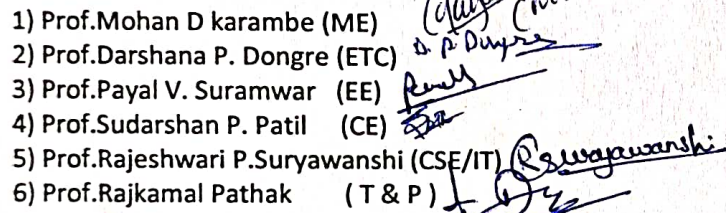 1) Prof.Mohan D karambe (ME)
D. P. Dongre
2) Prof.Darshana P. Dongre (ETC)
3) Prof.Payal V. Suramwar (EE)
4) Prof.Sudarshan P. Patil (CE)
5) Prof.Rajeshwari P.Suryawanshi (CSE/IT) Rsuryawanshi
6) Prof.Rajkamal Pathak ( T & P )